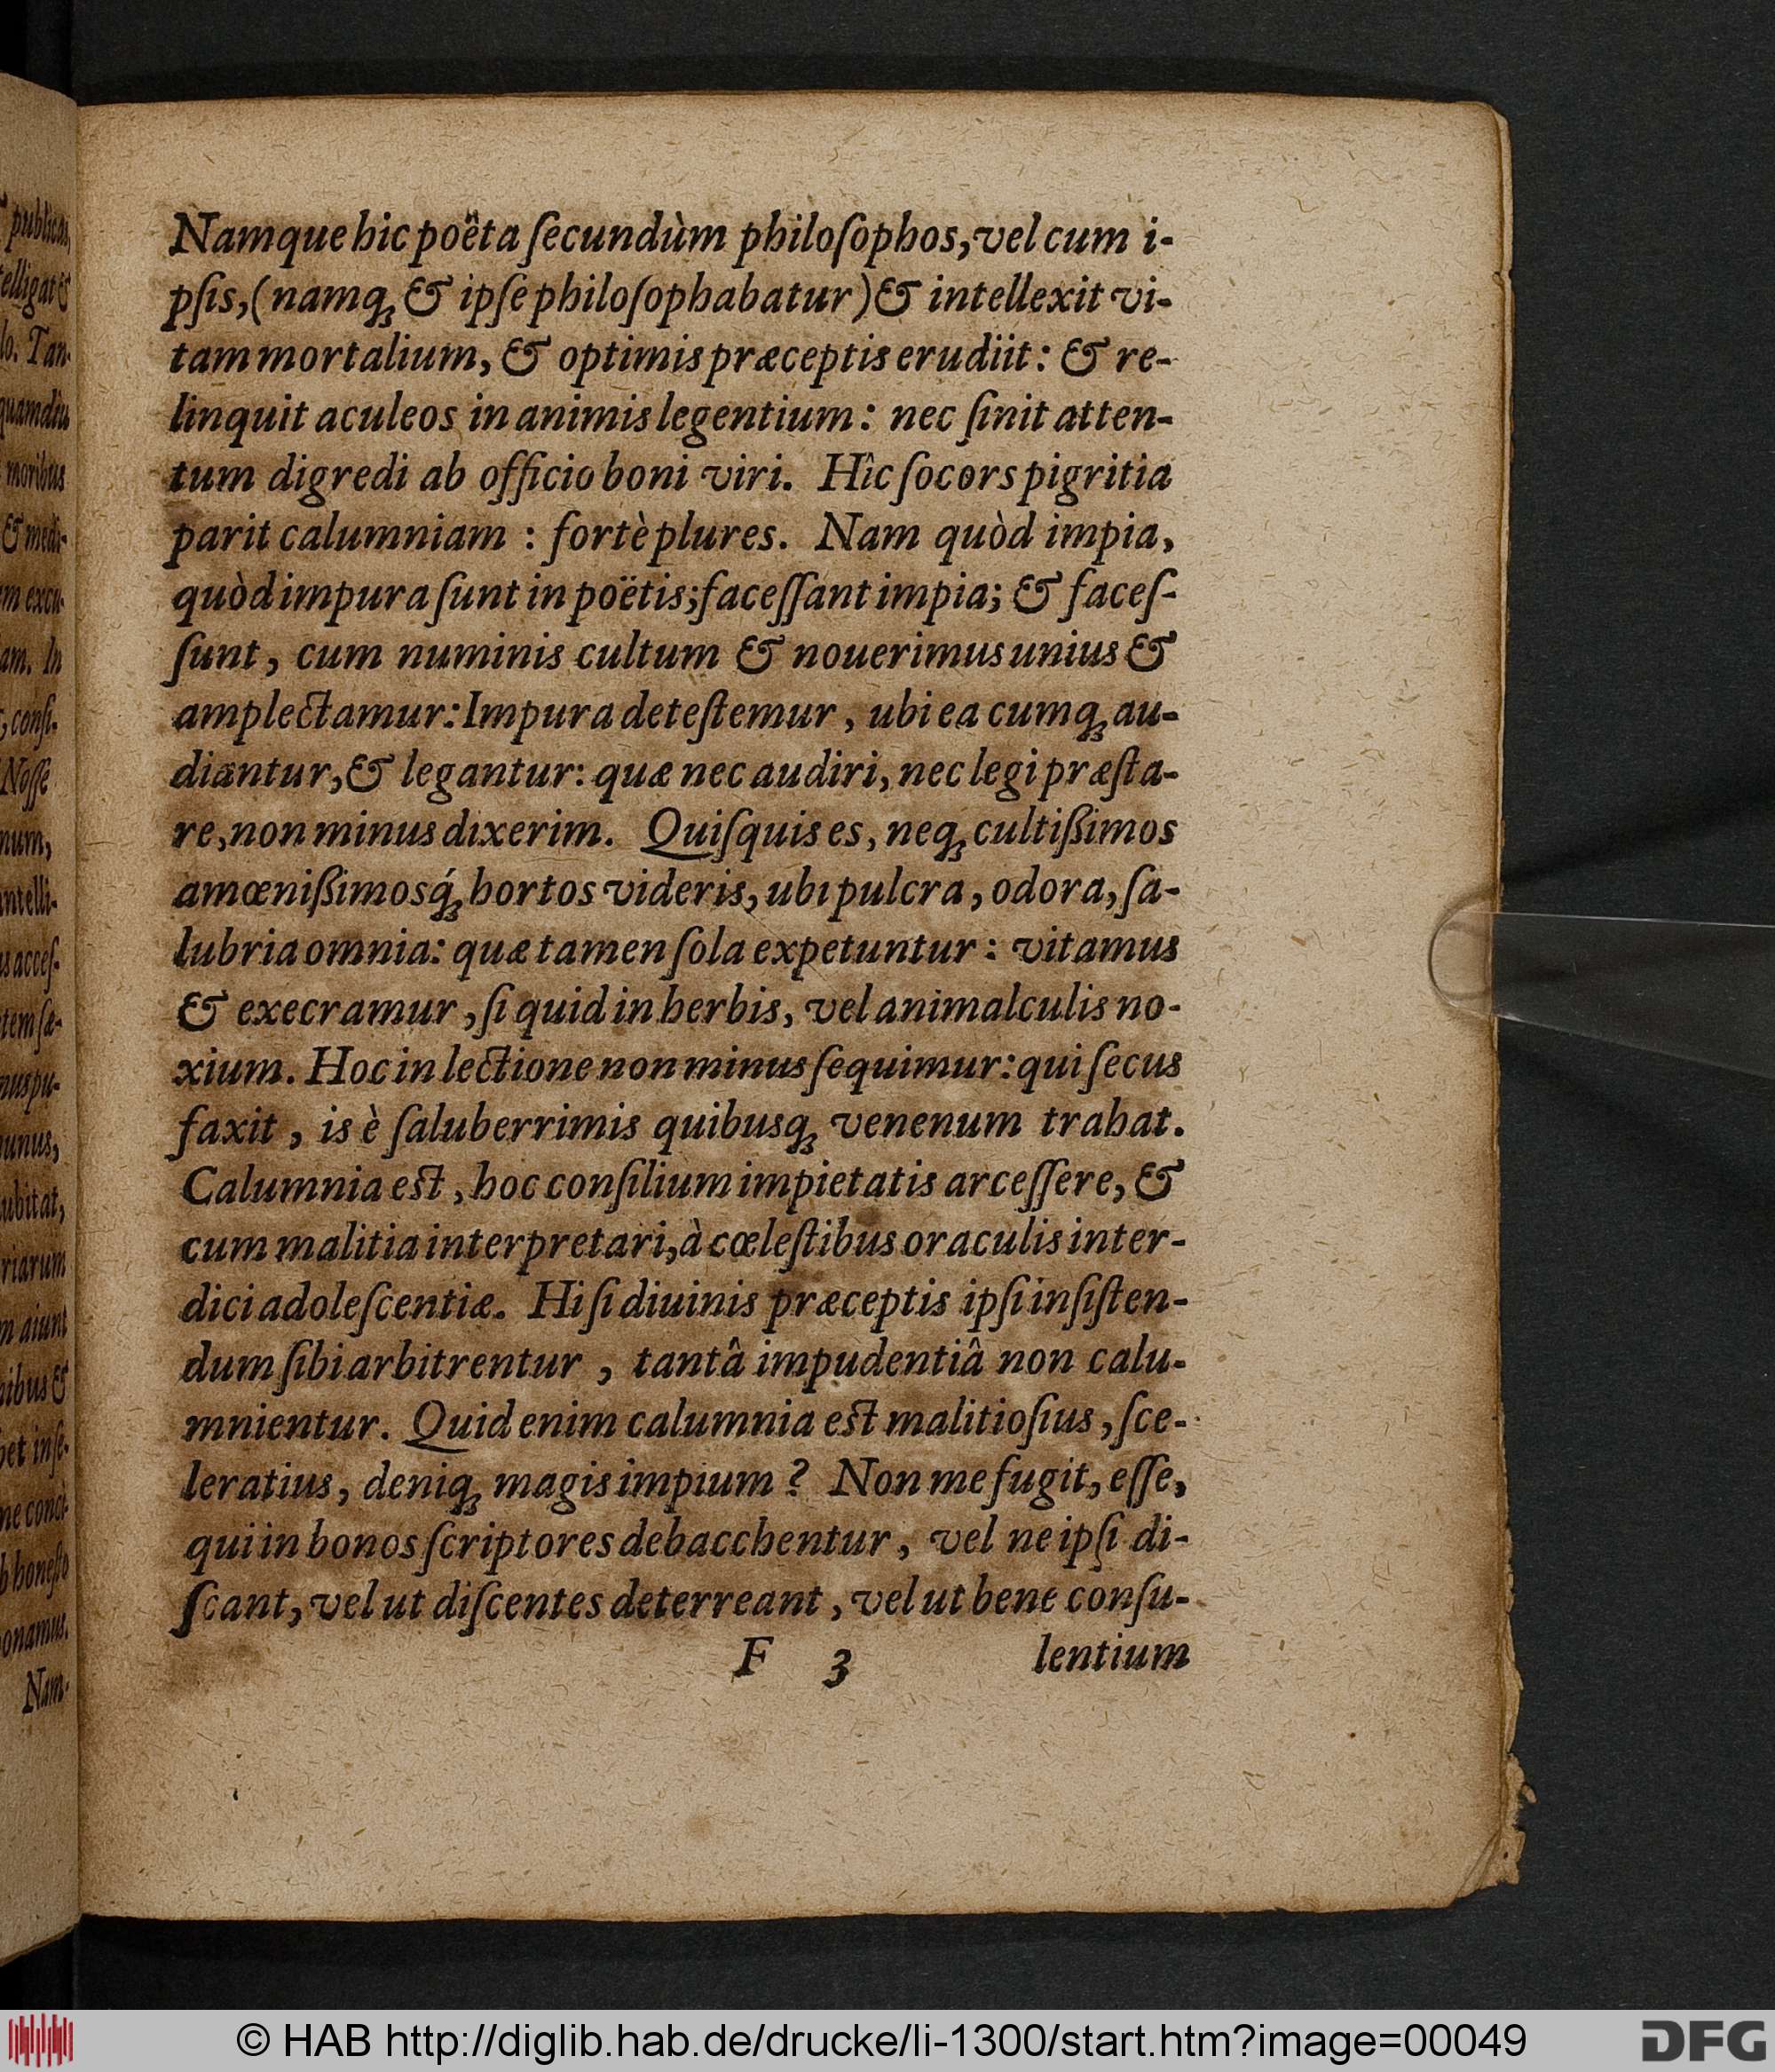 Namque hic poëta ſecundùm philoſophos, vel cum i-
pſis, (namq; & ipſe philoſophabatur) & intellexit vi-
tam mortalium, & optimis præceptis erudiit: & re-
linquit aculeos in animis legentium: nec ſinit atten-
tum digredi ab officio boni viri. Hîc ſocors pigritia
parit calumniam: fortè plures. Nam quòd impia,
quòd impura ſunt in poëtis; faceſſant impia; & faceſ-
ſunt, cum numinis cultum & nouerimus unius &
amplectamur: Impura deteſtemur, ubi ea cumq; au-
diantur, & legantur: quæ nec audiri, nec legi præſta-
re, non minus dixerim. Quiſquis es, neq; cultißimos
amœnißimosq́; hortos videris, ubi pulcra, odora, ſa-
lubria omnia: quæ tamen ſola expetuntur: vitamus
& execramur, ſi quid in herbis, vel animalculis no-
xium. Hoc in lectione non minus ſequimur: qui ſecus
faxit, is è ſaluberrimis quibusq; venenum trahat.
Calumnia eſt, hoc conſilium impietatis arceſſere, &
cum malitia interpretari, à cœleſtibus oraculis inter-
dici adoleſcentiæ. Hi ſi diuinis præceptis ipſi inſiſten-
dum ſibi arbitrentur, tantâ impudentiâ non calu-
mnientur. Quid enim calumnia eſt malitioſius, ſce-
leratius, deniq; magis impium? Non me fugit, eſſe,
qui in bonos ſcriptores debacchentur, vel ne ipſi di-
ſcant, vel ut diſcentes deterreant, vel ut bene conſu-
F 3 lentium
publicas,
elligat &
lo. Tan-
quamdiu
moribus
& medi-
m excu-
am. In
, conſi-
Noſſe
num,
intelli-
acceſ-
tem ſæ-
pu-
unus,
ubitat,
riarum
m aiunt
ibus &
et inſe-
ne conci-
honeſto
onamus.
Nam-
© HAB http://diglib.hab.de/drucke/li-1300/start.htm?image=00049
DFG